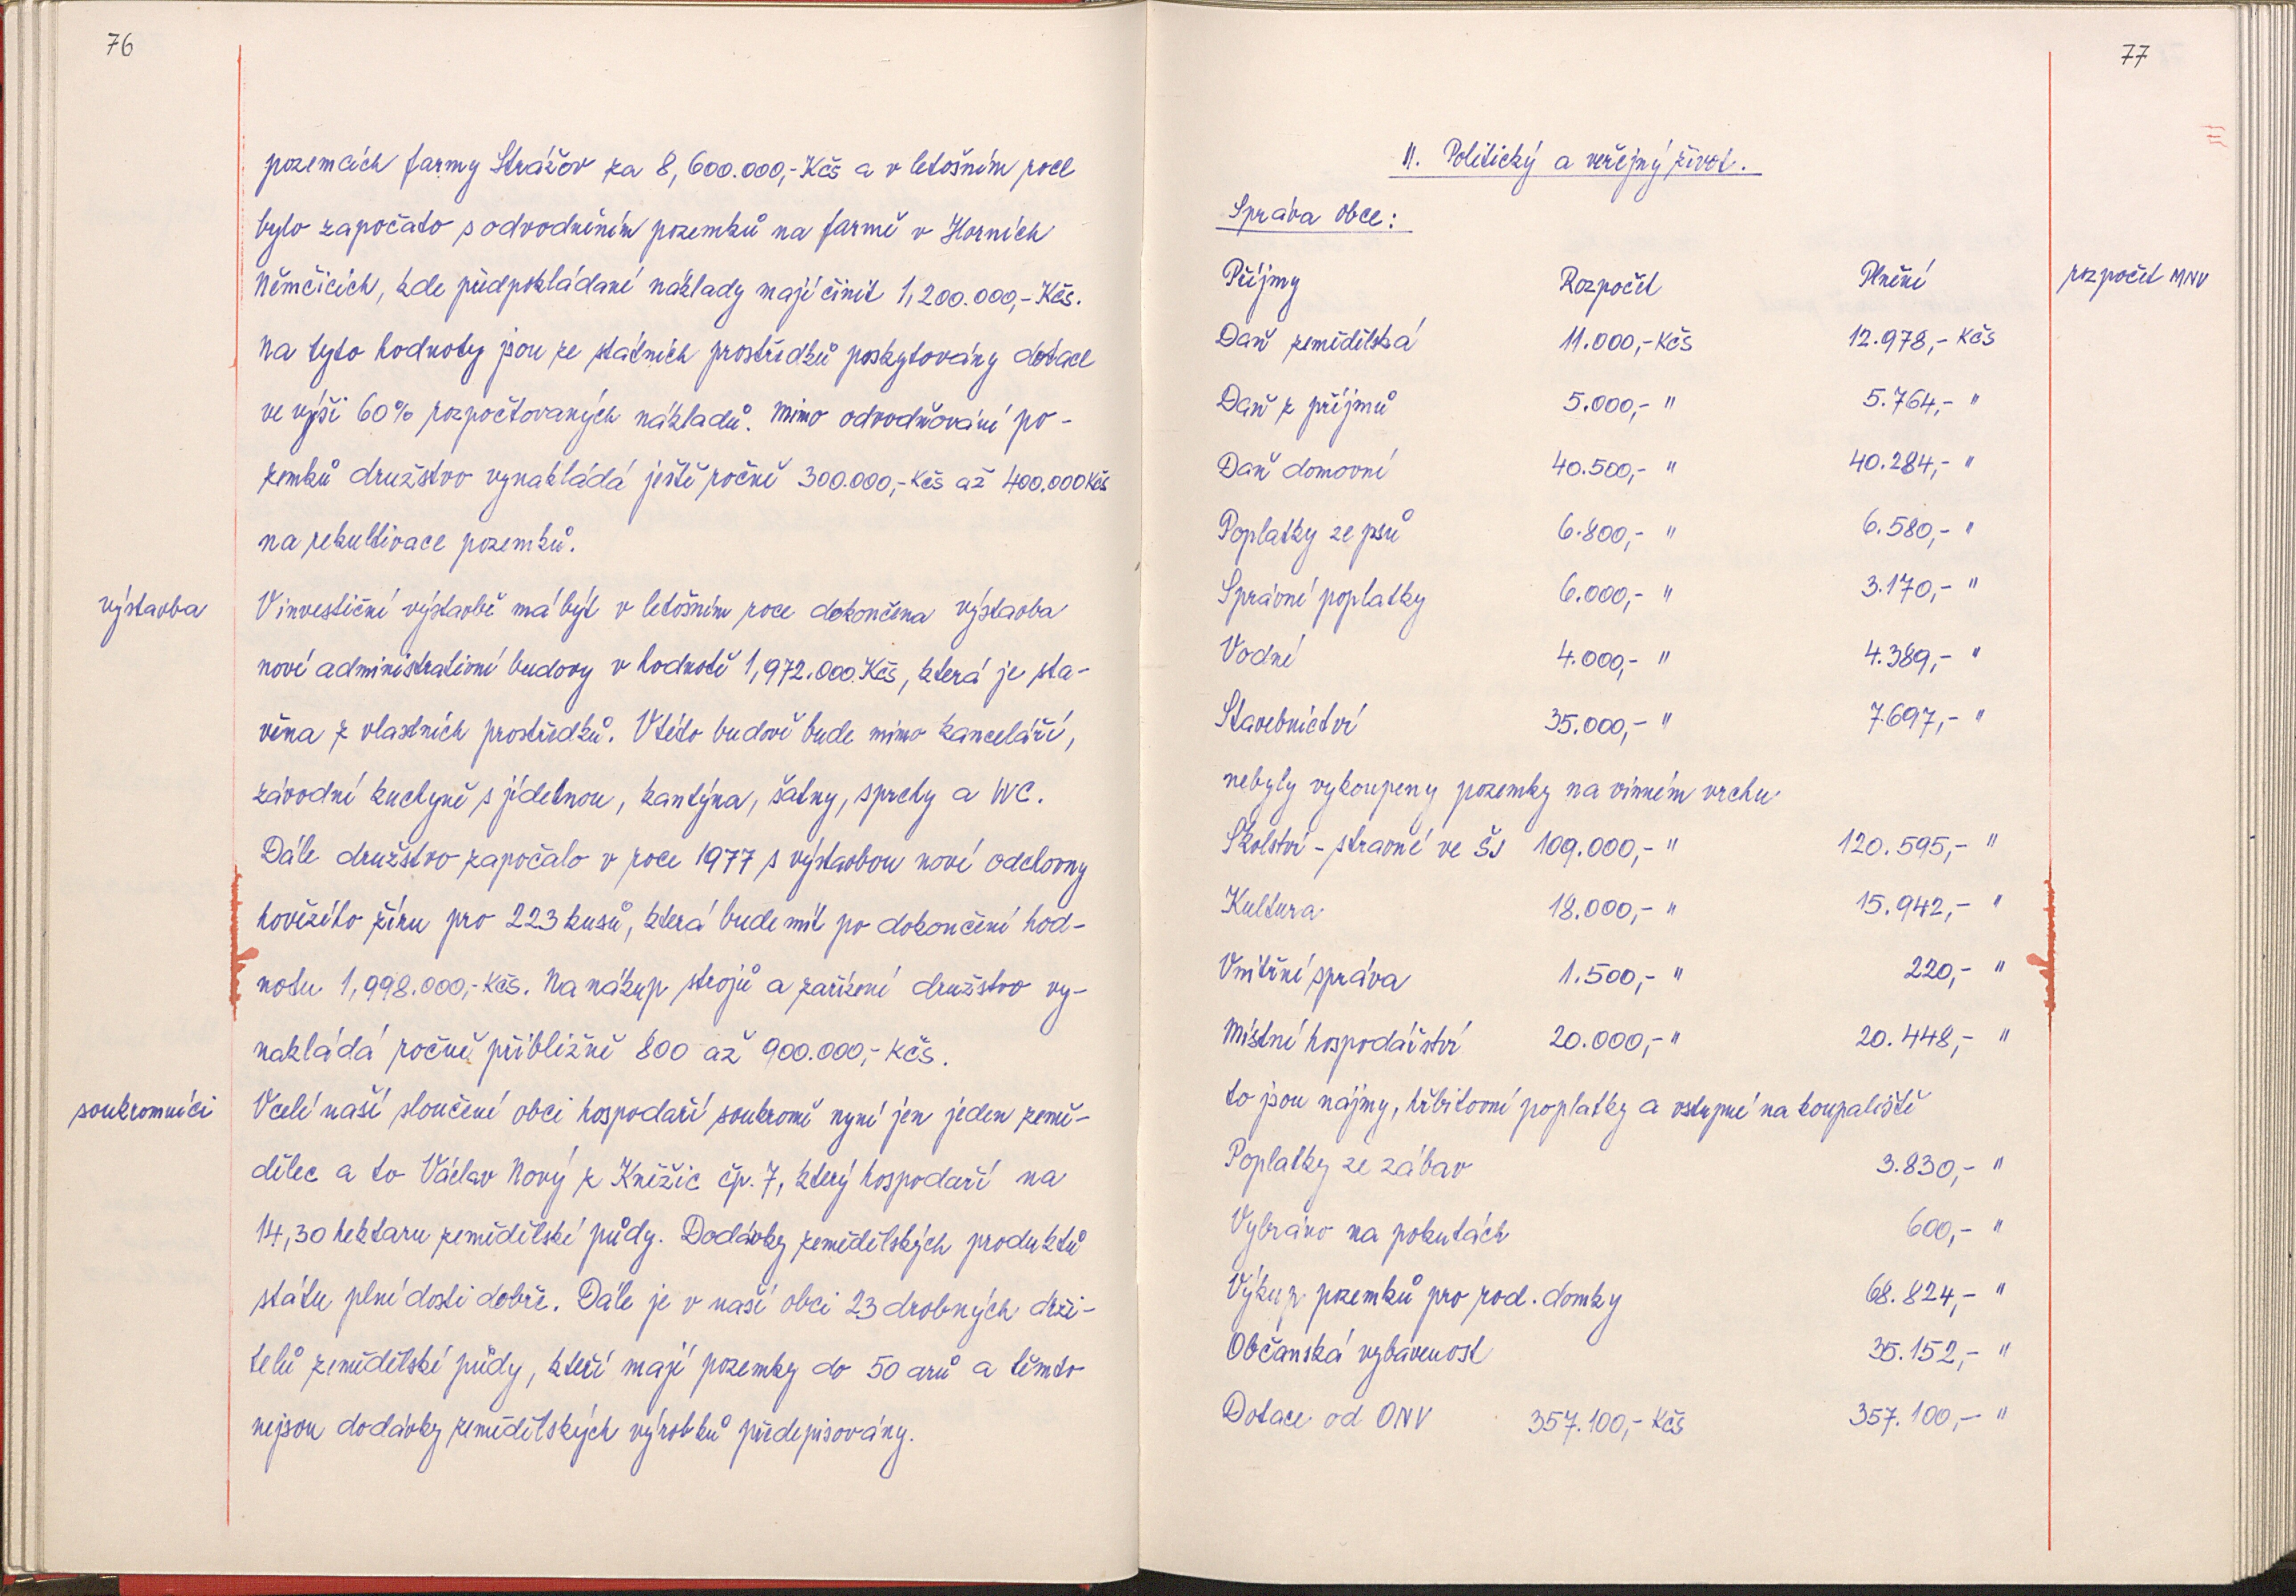 76
pozemcích farmy Strážov za 8,600.000,-Kčs a v letošním roce
bylo započato s odvodněním pozemků na farmě v Horních
Němčicích, kde předpokládané náklady mají činit 1,200.000,-Kčs.
Na tyto hodnoty jsou ze státních prostředků poskytovány dotace
ve výši 60% rozpočtovaných nákladů. Mimo odvodňování po-
zemků družstvo vynakládá ještě ročně 300.000,-Kčs až 400.000Kčs
na rekultivace pozemků.
výstavba
V investiční výstavbě má být v letošním roce dokončena výstavba
nové administrativní budovy v hodnotě 1,972.000.Kčs, která je sta-
věna z vlastních prostředků. V této budově bude mimo kanceláří,
závodní kuchyně s jídelnou, kantýna, šatny, sprchy a WC.
Dále družstvo započalo v roce 1977 s výstavbou nové odchovny
hovězího žíru pro 223 kusů, která bude mít po dokončení hod-
notu 1,998.000,-Kčs. Na nákup strojů a zařízení družstvo vy-
nakládá ročně přibližně 800 až 900.000,-Kčs.
soukromníci
V celé naší sloučené obci hospodaří soukromě nyní jen jeden země-
dělec a to Václav Nový z Kněžic čp. 7, který hospodaří na
14,30 hektaru zemědělské půdy. Dodávky zemědělských produktů
státu plní dosti dobře. Dále je v naší obci 23 drobných drži-
telů zemědělské půdy, kteří mají pozemky do 50 arů a těmto
nejsou dodávky zemědělských výrobků předepisovány.
77
II. Politický a veřejný život.
Správa obce:
rozpočet MNV
Příjmy Rozpočet Plnění
Daň zemědělská 11.000,-Kčs 12.978,- Kčs
Daň z příjmů 5.000,- " 5.764,- "
Daň domovní 40.500,- " 40.284,- "
Poplatky ze psů 6.800,- " 6.580,- "
Správní poplatky 6.000,- " 3.170,- "
Vodné 4.000,- " 4.389,- "
Stavebnictví 35.000,- " 7.697,- "
nebyly vykoupeny pozemky na vinném vrchu
Školství - stravné ve ŠJ 109.000,- " 120.595,- "
Kultura 18.000,- " 15.942,- "
Vnitřní správa 1.500,- " 220,- "
Místní hospodářství 20.000,- " 20.448,- "
to jsou nájmy, hřbitovní poplatky a vstupné na koupaliště
Poplatky ze zábav 3.830,- "
Vybráno na pokutách 600,- "
Výkup pozemků pro rod. domky 68.824,- "
Občanská vybavenost 35.152,- "
Dotace od ONV 357.100,- Kčs 357.100,- "